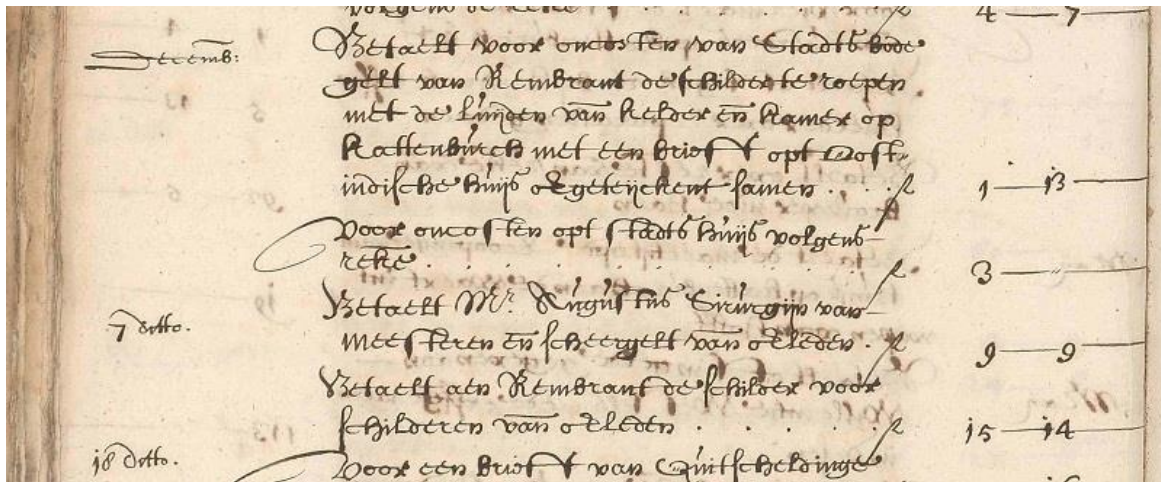 volgens de reke . . . . . 4 — 7
Decemb: Betaelt voor oncosten van Stadts bode
gelt van Rembrant de schilder te roepen
met de luijden van kelder en kamer op
kattenburch met een brieft opt Oost-
indische huijs o geteijckent samen . . . 1 — 13
Voor oncosten opt stadts huijs volgens
reke . . . . . 3 —
7 ditto. Betaelt Mr. Augustus Sirurgijn van
meesteren en scheergelt van overleden . 9 — 9
Betaelt aen Rembrant de schilder voor
schilderen van overleden . . . . 15 — 14
18 ditto. Voor een brieft van Quitscheldinge